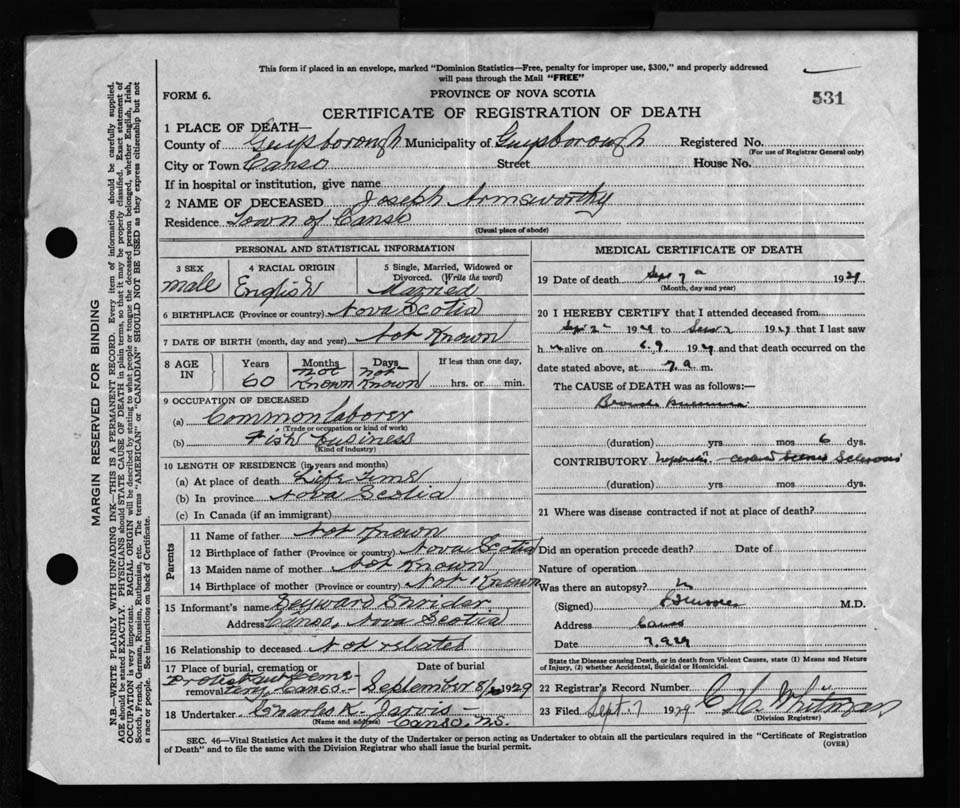 This form if placed in an envelope, marked "Dominion Statistics—Free, penalty for improper use, $300," and properly addressed
will pass through the Mail "FREE"
FORM 6.
PROVINCE OF NOVA SCOTIA
531
CERTIFICATE OF REGISTRATION OF DEATH
1 PLACE OF DEATH—
County of Guysborough Municipality of Guysborough Registered No.
(For use of Registrar General only)
City or Town Canso Street House No.
If in hospital or institution, give name
2 NAME OF DECEASED Joseph Armsworthy
Residence Town of Canso
(Usual place of abode)
PERSONAL AND STATISTICAL INFORMATION
3 SEX
male
4 RACIAL ORIGIN
English
5 Single, Married, Widowed or
Divorced. (Write the word)
Married
6 BIRTHPLACE (Province or country) Nova Scotia
7 DATE OF BIRTH (month, day and year) Not Known
8 AGE
IN
Years Months Days If less than one day,
60 Not Known Not Known hrs. or min.
9 OCCUPATION OF DECEASED
(a) Common laborer
(Trade or occupation or kind of work)
(b) Fish business
(Kind of industry)
10 LENGTH OF RESIDENCE (in years and months)
(a) At place of death Life Time
(b) In province Nova Scotia
(c) In Canada (if an immigrant)
Parents
11 Name of father Not Known
12 Birthplace of father (Province or country) Nova Scotia
13 Maiden name of mother Not Known
14 Birthplace of mother (Province or country) Not Known
15 Informant's name
Address Canso, Nova Scotia
16 Relationship to deceased Not related
17 Place of burial, cremation or
removal Protestant Cemetery Canso
Date of burial
September 8/1929
18 Undertaker Charles K. Jarvis
(Name and address) Canso, N.S.
MEDICAL CERTIFICATE OF DEATH
19 Date of death Sept 7 1929
(Month, day and year)
20 I HEREBY CERTIFY that I attended deceased from
Sept 2 1929 to 1929 that I last saw
h alive on 1929 and that death occurred on the
date stated above, at 7 a. m.
The CAUSE of DEATH was as follows:—
Broncho pneumonia
(duration) yrs mos 6 dys.
CONTRIBUTORY
(duration) yrs. mos dys.
21 Where was disease contracted if not at place of death?
Did an operation precede death? Date of
Nature of operation
Was there an autopsy?
(Signed) M.D.
Address Canso
Date 7.9.29
State the Disease causing Death, or in death from Violent Causes, state (1) Means and Nature
of Injury, (2) whether Accidental, Suicidal or Homicidal.
22 Registrar's Record Number
23 Filed Sept. 7 1929 C H Whitman
(Division Registrar)
SEC. 46—Vital Statistics Act makes it the duty of the Undertaker or person acting as Undertaker to obtain all the particulars required in the "Certificate of Registration
of Death" and to file the same with the Division Registrar who shall issue the burial permit.
(OVER)
MARGIN RESERVED FOR BINDING
N.B.—WRITE PLAINLY WITH UNFADING INK—THIS IS A PERMANENT RECORD. Every item of information should be carefully supplied.
AGE should be stated EXACTLY. PHYSICIANS should STATE CAUSE OF DEATH in plain terms, so that it may be properly classified. Exact statement of
OCCUPATION is very important. RACIAL ORIGIN will be described by stating to what people or tongue the deceased person belonged, whether English, Irish,
Scotch, French, German, Russian, Ruthenian, etc. The terms "AMERICAN" or "CANADIAN" SHOULD NOT BE USED as they express citizenship but not
a race or people. See instructions on back of Certificate.